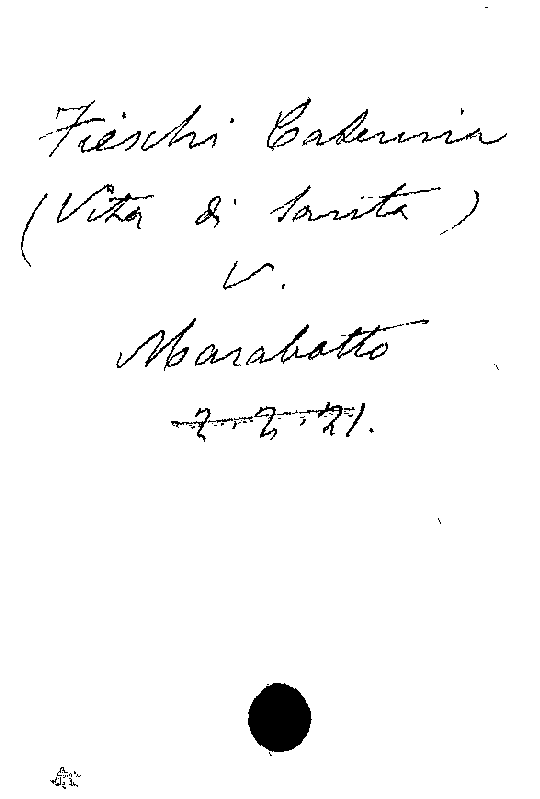 Fieschi Caterina
(Vita di Santa)
V.
Marabotto
2.2.21.